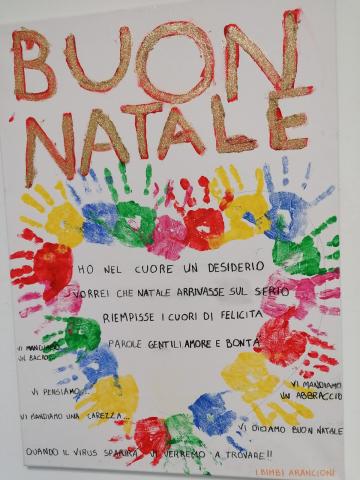 BUON
NATALE
HO NEL CUORE UN DESIDERIO
VORREI CHE NATALE ARRIVASSE SUL SERIO
RIEMPISSE I CUORI DI FELICITA
PAROLE GENTILI, AMORE E BONTÀ
VI MANDIAMO
UN BACIO...
VI MANDIAMO
UN ABBRACCIO
VI PENSIAMO...
VI MANDIAMO UNA CAREZZA...
VI DICIAMO BUON NATALE
QUANDO IL VIRUS SPARIRÀ VI VERREMO A TROVARE!!
I BIMBI ARANCIONI